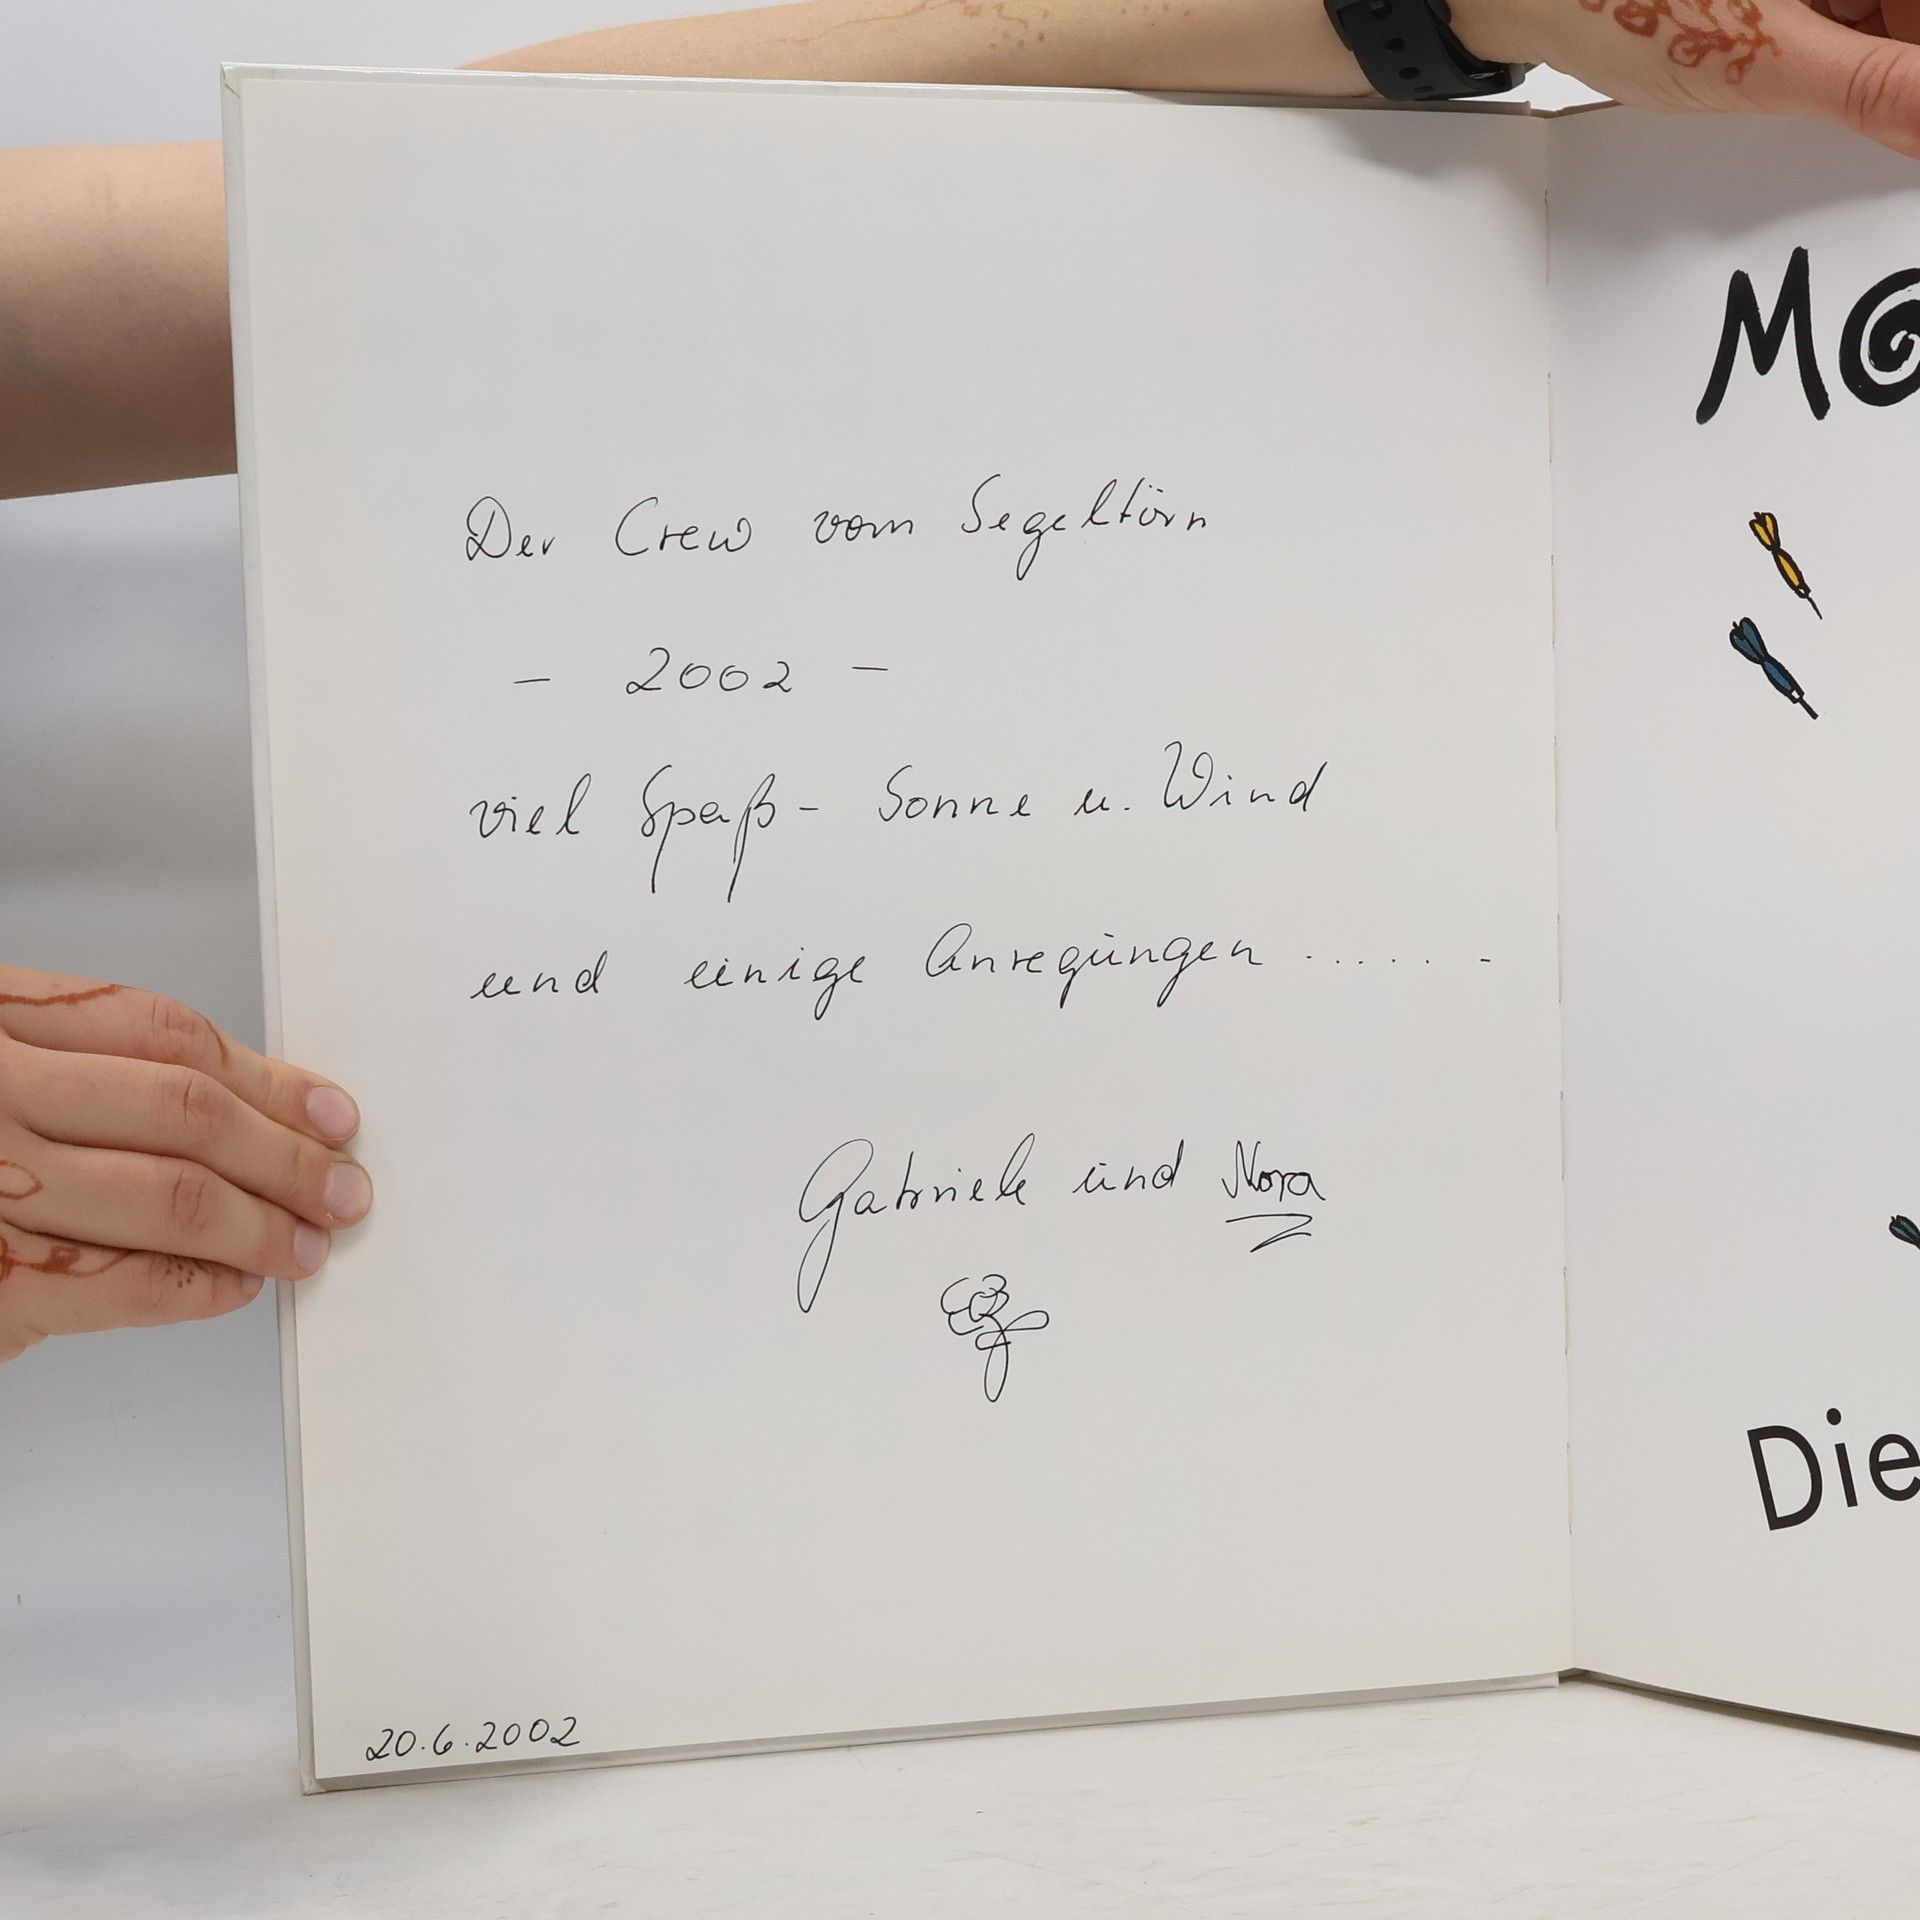 Der Crew vom Segeltörn
- 2002 -
viel Spaß - Sonne u. Wind
und einige Anregungen ...... -
Gabriele und Nora
20.6.2002
Die